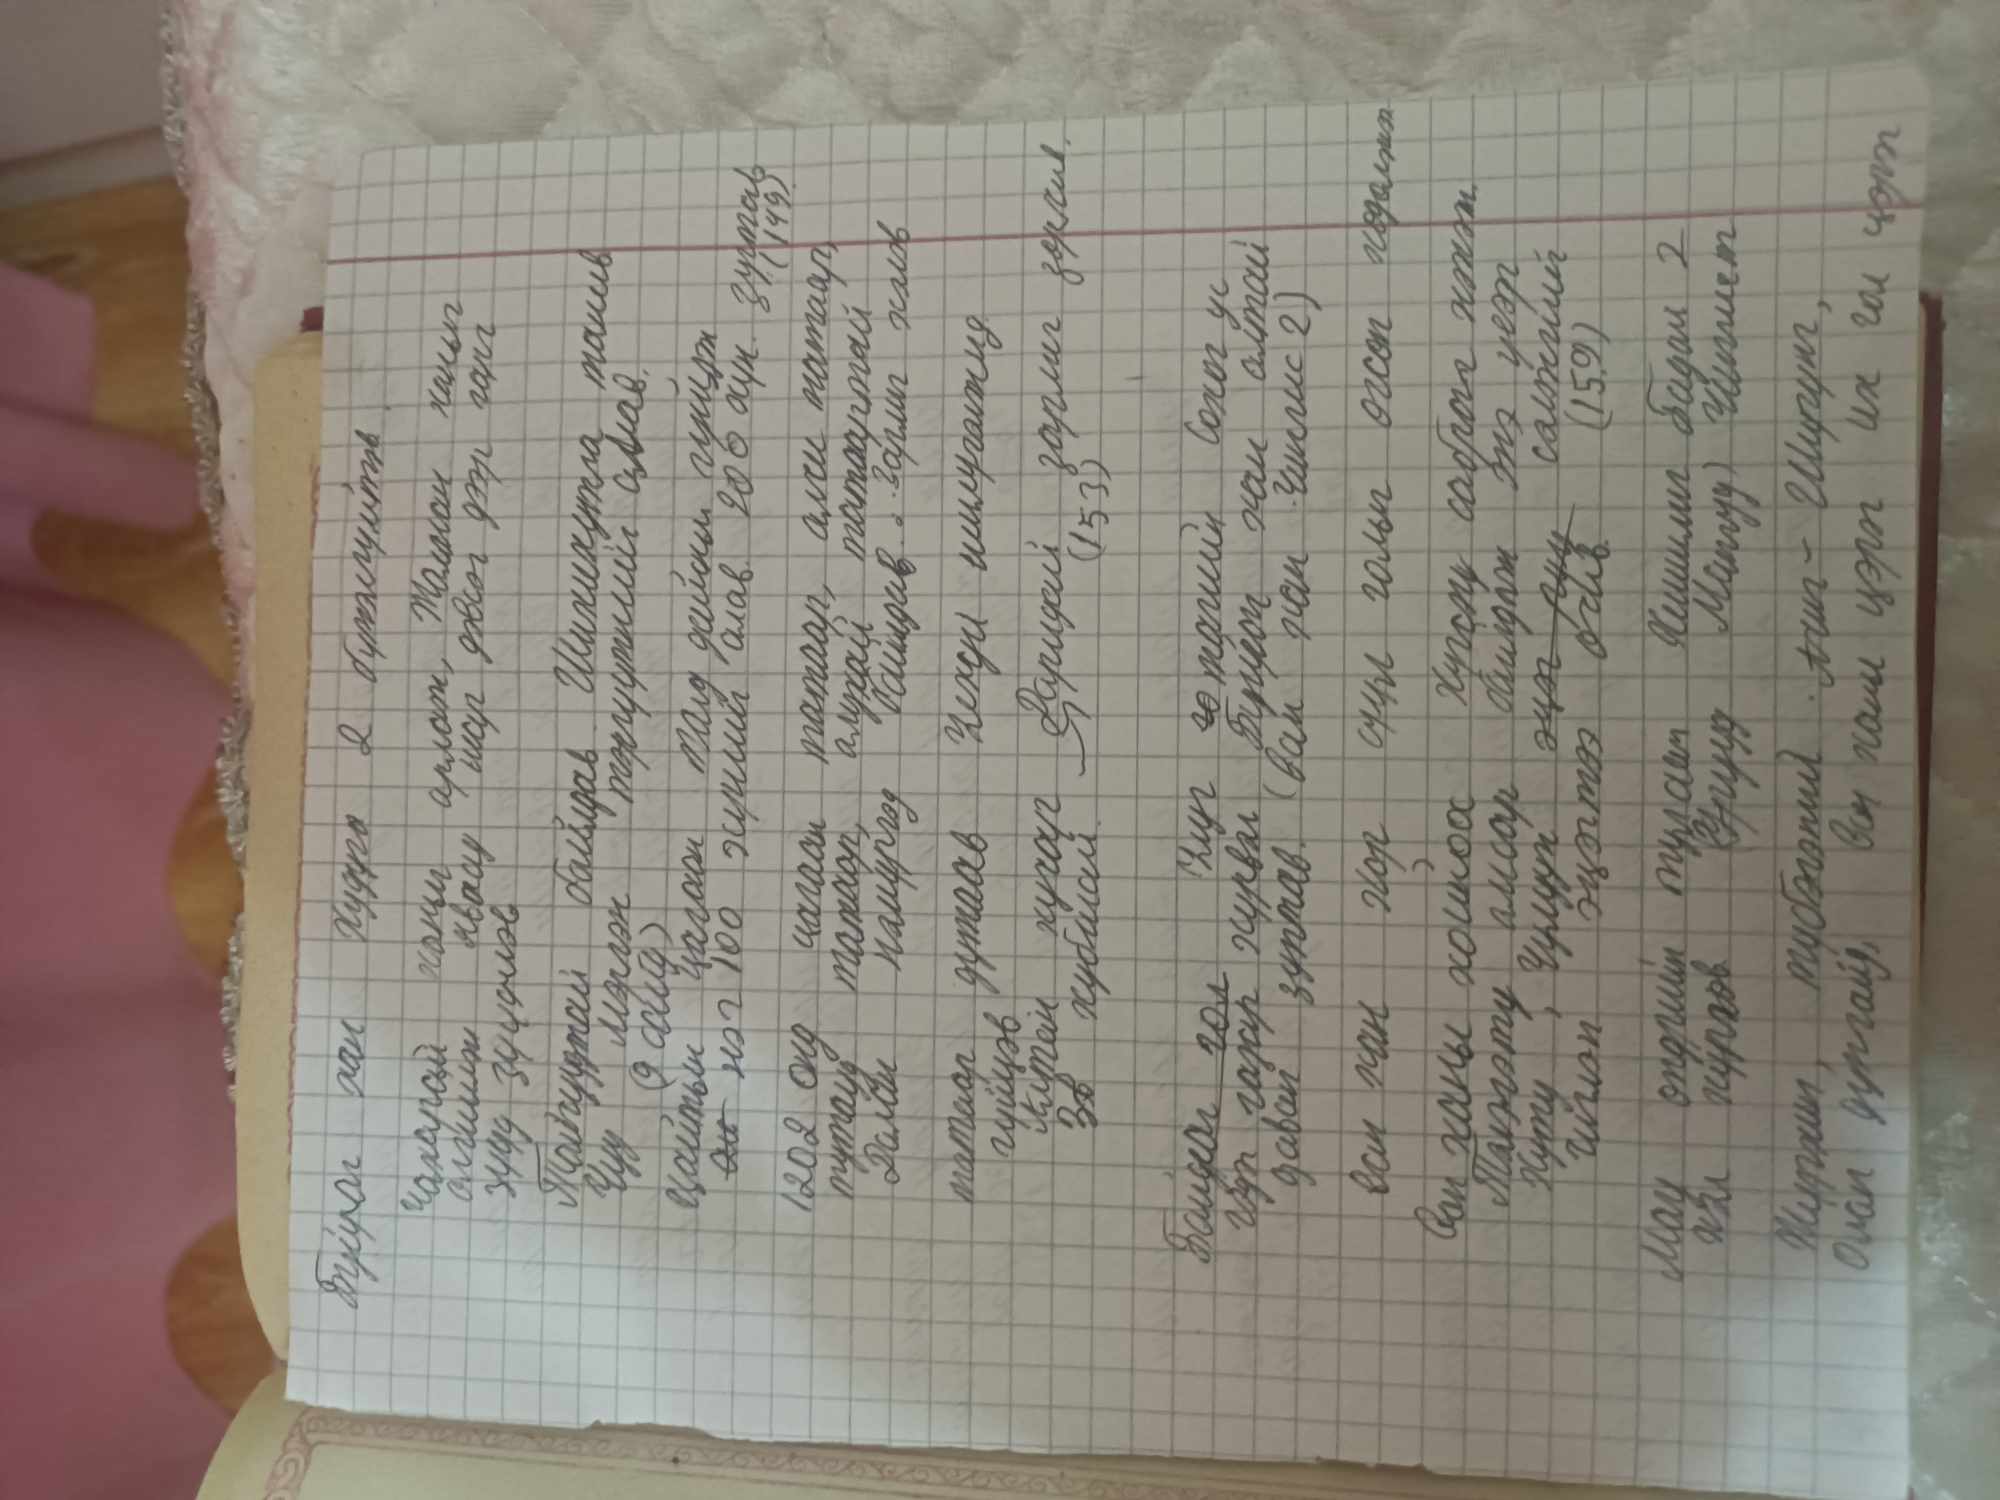 Буйраг хан Худуга 2 бүтэлгүйтэв.
ханыг арлаж, Жалман ханыг
яваад шар дэвсэг дээр гарг
зүүд зүүдлэв
Тайчуудтай байлдав. Шихихутга танив
Чуу мэргэн тэргүүтнийг алав.
(9 )
цагаан талд дайсныг гүйцэж
нэг 100 хүнийг алав. 200 хүн зугтав
(149)
1202 онд цагаан татаар, алчи татаар,
тутауд татаар, алухай татаартай
Далан нэмүргэд байлдав. Зарлиг хэлэв
татаар дутаав
гүйцэв
Алтан хучар Даридай зарлиг зөрчив.
Зэв хубилай. → (153)
Байдраг гол тагийн Сохог ус
гэдэг газар хүрвэл Буйраг хан алтай
даван зугтав. (ван хан Чингис 2)
ван хан хар сүүл голыг өгсөн хөдөлжээ
Ван ханы хойноос сабраг нэхэж
Тэлэгэту амсар байлдаж энэ үеэр
Хуту, Чулуун эцэг рүү сэлэнгийг
чиглэн эцэгтээ очив. (159)
Мау өндрийн тулаан Хишилиг Бадай 2
хэл хүргэв (Урууд Мангуд) Чингист
Жүрхин, түбэгэний Ачиг-Ширүүн,
Олан дунгайд, Ван ханы цэрэг их гол цэрэг